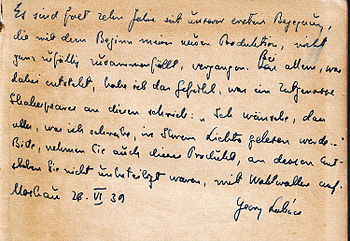 Es sind fast zehn Jahre seit unserer ersten Begegnung,
die mit dem Beginn meiner neuen Produktion, nicht
ganz zufällig zusammenfällt, vergangen. Bei allem, was
dabei entsteht, habe ich das Gefühl, was ein Zeitgenosse
Shakespeares an diesen schrieb: "Ich wünsche, dass
alles, was ich schreibe, in Ihrem Lichte gelesen werde."
Bitte, nehmen Sie auch dieses Produkt, an dessen Ent-
stehen Sie nicht unbeteiligt waren, mit Wohlwollen auf.
Moskau 28. VI 39
Georg Lukács